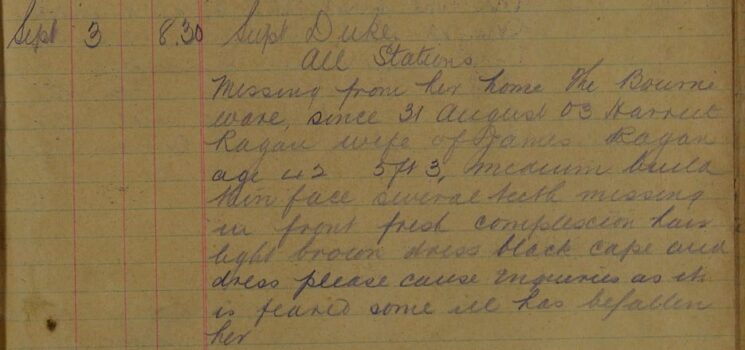 Sept 3 8.30 Supt Duke.
All Stations
Missing from her home The Bourne
ware, since 31 August 03 Harriet
Ragan wife of James Ragan
age 42 5ft 3, medium build
thin face several teeth missing
in front fresh complexion hair
light brown dress black cape and
dress please cause enquiries as it
is feared some ill has befallen
her